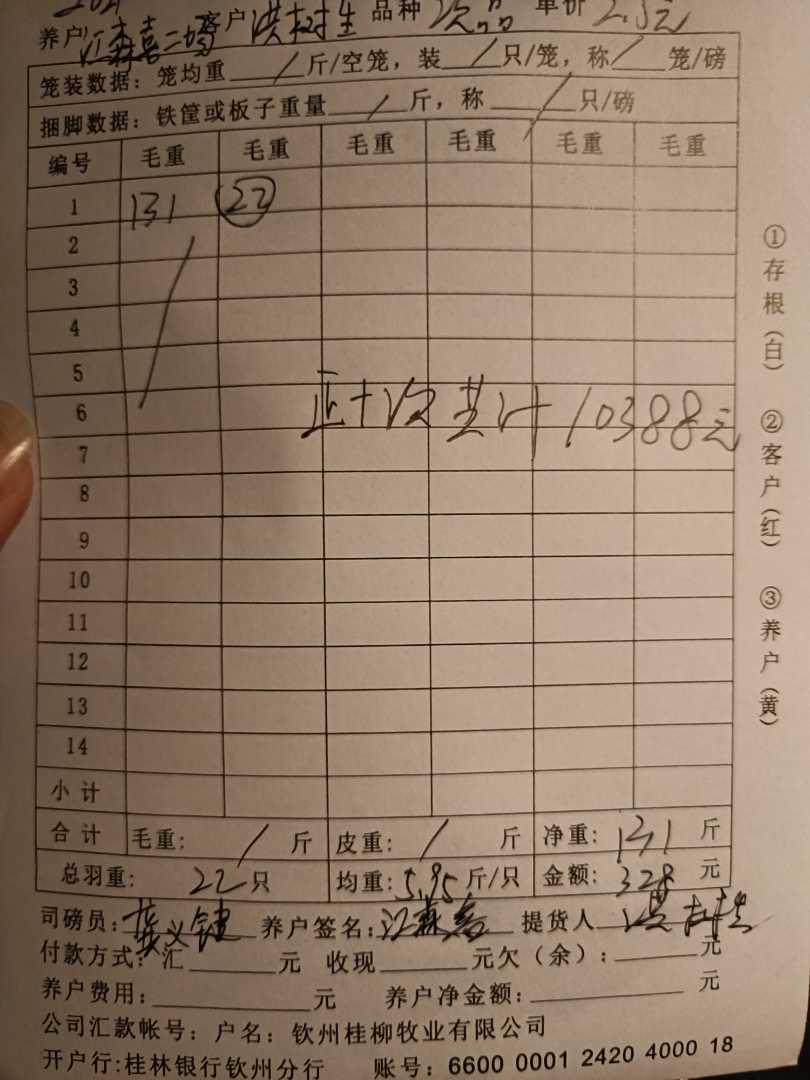 养户 江森喜二鸭 客户 洪树生 品种 次品 单价 2.5元
笼装数据：笼均重 / 斤/空笼，装 / 只/笼，称 / 笼/磅
捆脚数据：铁筐或板子重量 / 斤，称 / 只/磅
编号 毛重 毛重 毛重 毛重 毛重 毛重
1 131 22
2
3
4
5
6 正+次共计10388元
7
8
9
10
11
12
13
14
小计
合计 毛重： / 斤 皮重： / 斤 净重：131 斤
总羽重： 22只 均重：5.95斤/只 金额：328 元
司磅员： 养户签名：江森喜 提货人 洪树生
付款方式：汇 元 收现 元欠（余）： 元
养户费用： 元 养户净金额： 元
公司汇款帐号：户名：钦州桂柳牧业有限公司
开户行:桂林银行钦州分行 账号：6600 0001 2420 4000 18
①存根（白） ②客户（红） ③养户（黄）